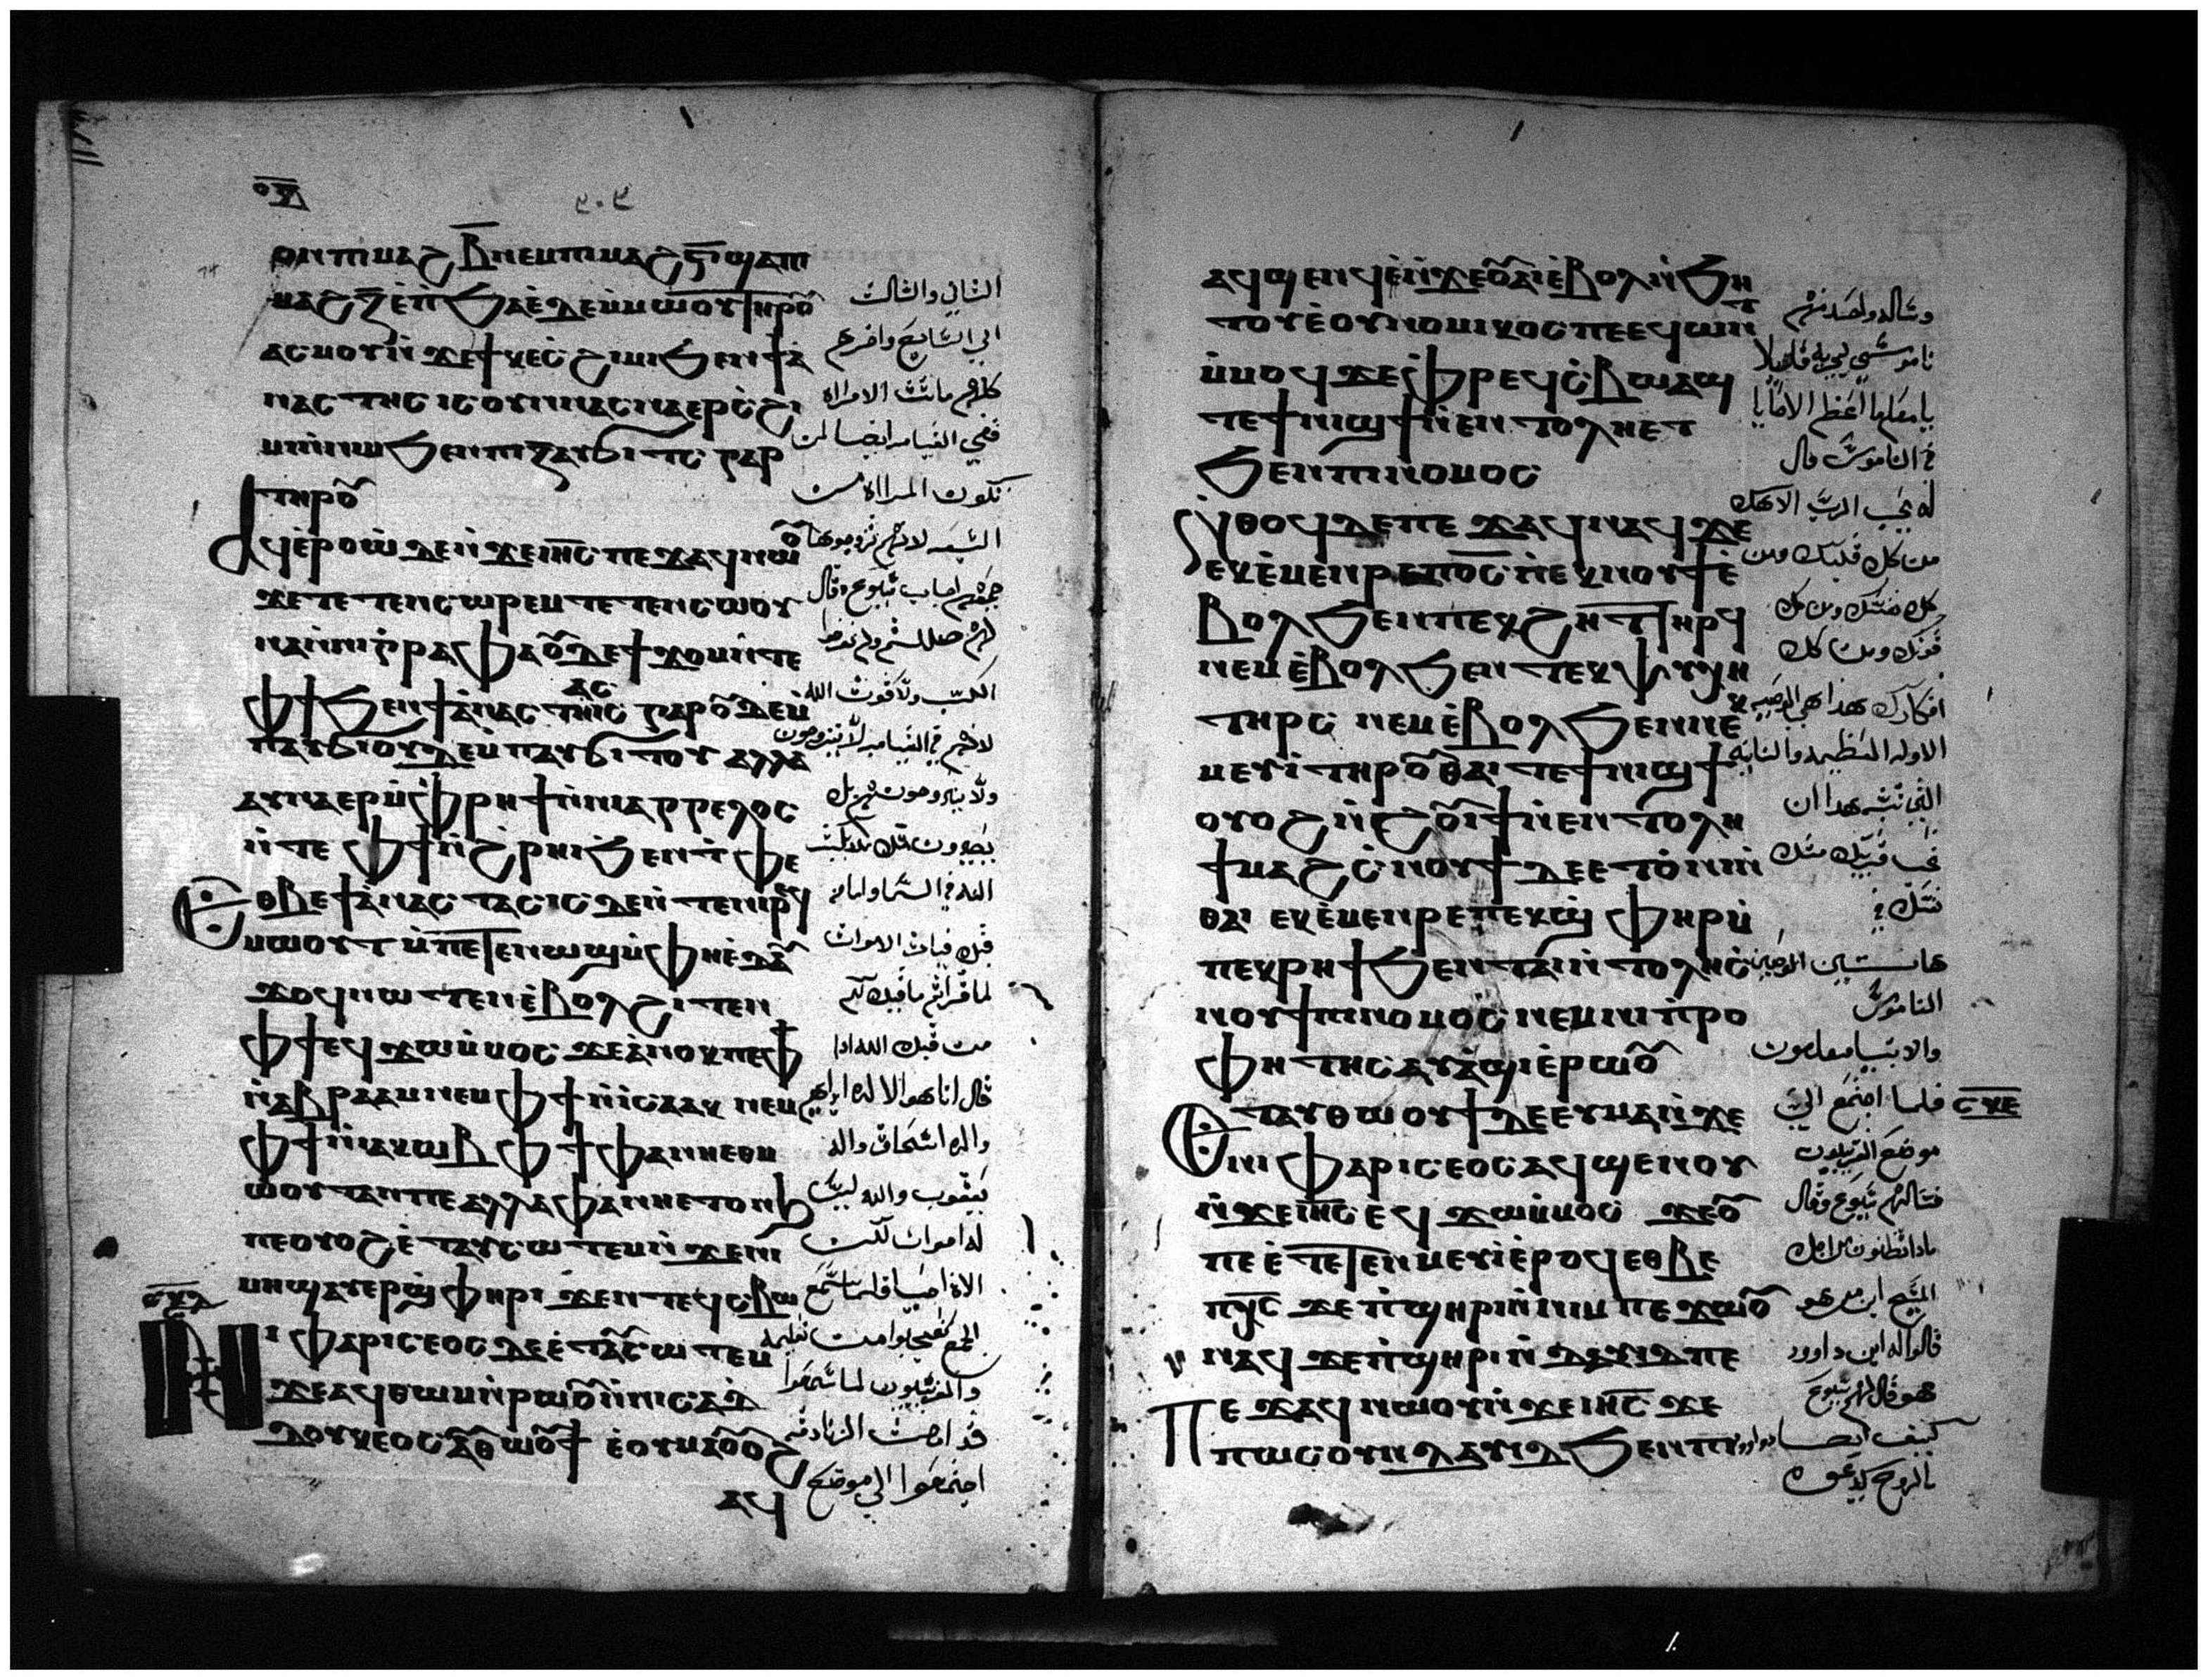 ⲟⲅⲇ
٣٠٩
ⲟⲛ ⲡⲓⲙⲁϩ ⲃ̅ ⲛⲉⲙ ⲡⲓⲙⲁϩ ⲅ̅ ϣⲁ ⲡⲓ
ⲙⲁϩ ⲍ̅ ⲉ̀ⲡϧⲁⲉ̀ ⲇⲉ ⲙ̀ⲙⲱⲟⲩ ⲧⲏⲣⲟⲩ
ⲁⲥⲙⲟⲩ ⲛ̀ϫⲉ ϯⲕⲉⲥϩⲓⲙⲓ ϧⲉⲛ ϯⲁ̀
ⲛⲁⲥⲧⲏⲥⲓⲥ ⲟⲩⲛ ⲛⲁⲥⲛⲁⲉⲣⲥ̀ϩⲓ
ⲙⲓ ⲛ̀ⲛⲓⲙ ϧⲉⲛ ⲡⲓⲍ̅ ⲁⲩϭⲓⲧⲥ ⲅⲁⲣ
ⲧⲏⲣⲟⲩ
ⲁϥⲉ̀ⲣⲟⲩⲱ̀ ⲇⲉ ⲛ̀ϫⲉ ⲓⲏ̅ⲥ̅ ⲡⲉϫⲁϥ ⲛⲱⲟⲩ
ϫⲉ ⲧⲉⲧⲉⲛⲥⲱⲣⲉⲙ ⲧⲉⲧⲉⲛⲥⲱⲟⲩ
ⲛ ⲁⲛ ⲛ̀ⲛⲓⲅⲣⲁⲫⲏ ⲟⲩⲇⲉ ϯϫⲟⲙ ⲛ̀ⲧⲉ
ⲫϯ ϧⲉⲛ ϯⲁ̀ⲛⲁⲥⲧⲁⲥⲓⲥ ⲅⲁⲣ ⲟⲩⲇⲉ ⲙ̀
ⲡⲁⲩϭⲓ ⲟⲩⲇⲉ ⲙ̀ⲡⲁⲩϭⲓⲧⲟⲩ ⲁⲗⲗⲁ
ⲁⲩⲛⲁⲉⲣ ⲙ̀ⲫⲣⲏϯ ⲛ̀ⲛⲓⲁⲅⲅⲉⲗⲟⲥ
ⲛ̀ⲧⲉ ⲫϯ ⲛ̀ϩ̀ⲣⲏⲓ ϧⲉⲛ ⲧ̀ⲫⲉ
ⲉⲑⲃⲉ ϯⲁ̀ⲛⲁⲥⲧⲁⲥⲓⲥ ⲇⲉ ⲛ̀ⲧⲉ ⲛⲓⲣⲉϥ
ⲙⲱⲟⲩⲧ ⲙ̀ⲡⲉⲧⲉⲛⲱϣ ⲙ̀ⲫⲏ ⲉ̀ⲧⲁⲩ
ϫⲟϥ ⲛⲱⲧⲉⲛ ⲉ̀ⲃⲟⲗ ϩⲓⲧⲉⲛ
ⲫϯ ⲉϥϫⲱ ⲙ̀ⲙⲟⲥ ϫⲉ ⲁ̀ⲛⲟⲕ ⲡⲉ ⲫϯ
ⲛ̀ⲁⲃⲣⲁⲁⲙ ⲛⲉⲙ ⲫϯ ⲛ̀ⲓⲥⲁⲁⲕ ⲛⲉⲙ
ⲫϯ ⲛ̀ⲓⲁⲕⲱⲃ ⲫϯ ⲫⲁ ⲛⲏ ⲉⲑⲙ
ⲱⲟⲩⲧ ⲁⲛ ⲡⲉ ⲁⲗⲗⲁ ⲫⲁ ⲛⲏ ⲉⲧⲟⲛϧ
ⲡⲉ ⲟⲩⲟϩ ⲉ̀ⲧⲁⲩⲥⲱⲧⲉⲙ ⲛ̀ϫⲉ ⲛⲓ
ⲙⲏϣ ⲁⲩⲉⲣϣ̀ⲫⲏⲣⲓ ϧⲉⲛ ⲧⲉϥⲥ̀ⲃⲱ
ⲛⲓⲫⲁⲣⲓⲥⲉⲟⲥ ⲇⲉ ⲉ̀ⲧⲁⲩⲥⲱⲧⲉⲙ
ϫⲉ ⲁϥⲑⲱⲙ ⲛ̀ⲣⲱⲟⲩ ⲛ̀ⲛⲓⲥⲁⲇ
ⲇⲟⲩⲕⲉⲟⲥ ⲁⲩⲑⲱⲟⲩϯ ⲉ̀ⲟⲩⲙⲁ ⲟⲩⲟϩ
ⲁϥ
الثاني والثالث
الي السابع واخرهم
كلهم ماتت الامراه
ففي القيامه ايضا لمن
تكون المراه من
السبعه لانهم تزوجوها
جميعهم اجاب يسوع وقال
لهم ضللتم ولم تعرفوا
الكتب ولا قوت الله
لانهم في القيامه لا يتزوجون
ولا يتزوجون بل
يكونون مثل ملايكت
الله في السما واما من
قبل قيامت الاموات
لما قراتم ما قيل لكم
من قبل الله اذا
قال انا هو الاله ابراهيم
واله اسحاق واله
يعقوب والله ليس
اله اموات لكن
الاه احيا فلما سمع
الجمع تعجبوا من تعليمه
والفريسيون لما سمعوا
قد اصمت الزنادقه
اجتمعوا الي موضع
ⲁϥϣⲉⲛϥ ⲛ̀ϫⲉ ⲟⲩⲁⲓ ⲉ̀ⲃⲟⲗ ⲛ̀ϧⲏ
ⲧⲟⲩ ⲉ̀ⲟⲩⲛⲟⲙⲓⲕⲟⲥ ⲡⲉ ⲉϥϭⲱⲛⲧ
ⲙ̀ⲙⲟϥ ϫⲉ ⲫⲣⲉϥϯⲥ̀ⲃⲱ ⲁϣ
ⲧⲉ ϯⲛⲓϣϯ ⲛ̀ⲉⲛⲧⲟⲗⲏ ⲉⲧ
ϧⲉⲛ ⲡⲓⲛⲟⲙⲟⲥ
ⲛ̀ⲑⲟϥ ⲇⲉ ⲡⲉϫⲁϥ ⲛⲁϥ ϫⲉ
ⲉⲕⲉ̀ⲙⲉⲛⲣⲉ ⲡ̅ⲟ̅ⲥ̅ ⲡⲉⲕⲛⲟⲩϯ ⲉ̀
ⲃⲟⲗ ϧⲉⲛ ⲡⲉⲕϩⲏⲧ ⲧⲏⲣϥ
ⲛⲉⲙ ⲉ̀ⲃⲟⲗ ϧⲉⲛ ⲧⲉⲕⲯⲩⲭⲏ
ⲧⲏⲣⲥ ⲛⲉⲙ ⲉ̀ⲃⲟⲗ ϧⲉⲛ ⲛⲉⲕ
ⲙⲉⲩⲓ̀ ⲧⲏⲣⲟⲩ ⲑⲁⲓ ⲧⲉ ϯⲛⲓϣϯ
ⲟⲩⲟϩ ⲛ̀ϩⲟⲩⲓϯ ⲛ̀ⲉⲛⲧⲟⲗⲏ
ϯⲙⲁϩⲥ̀ⲛⲟⲩϯ ⲇⲉ ⲉⲧⲟ̀ⲛⲓ ⲛ̀
ⲑⲁⲓ ⲉⲕⲉ̀ⲙⲉⲛⲣⲉ ⲡⲉⲕϣ̀ⲫⲏⲣ ⲙ̀
ⲡⲉⲕⲣⲏϯ ϧⲉⲛ ⲧⲁⲓ ⲛ̀ⲧⲟⲗⲏ ⲥ̀
ⲛⲟⲩϯ ⲡⲓⲛⲟⲙⲟⲥ ⲛⲉⲙ ⲛⲓⲡⲣⲟ
ⲫⲏⲧⲏⲥ ⲁⲩⲁ̀ϣⲓ ⲉ̀ⲣⲱⲟⲩ
ⲉⲧⲁⲩⲑⲱⲟⲩϯ ⲇⲉ ⲉⲩⲙⲁ ⲛ̀ϫⲉ
ⲛⲓⲫⲁⲣⲓⲥⲉⲟⲥ ⲁϥϣⲉⲛⲟⲩ
ⲛ̀ϫⲉ ⲓⲏ̅ⲥ̅ ⲉϥϫⲱ ⲙ̀ⲙⲟⲥ ϫⲉ ⲟⲩ
ⲡⲉ ⲉ̀ⲧⲉⲧⲉⲛⲙⲉⲩⲓ ⲉ̀ⲣⲟϥ ⲉⲑⲃⲉ
ⲡⲭ̅ⲥ̅ ϫⲉ ⲡ̀ϣⲏⲣⲓ ⲛ̀ⲛⲓⲙ ⲡⲉϫⲱⲟⲩ
ⲛⲁϥ ϫⲉ ⲡ̀ϣⲏⲣⲓ ⲛ̀ⲇⲁⲩⲓⲇ ⲡⲉ
ⲡⲉϫⲁϥ ⲛⲱⲟⲩ ⲛ̀ϫⲉ ⲓⲏ̅ⲥ̅ ϫⲉ
ⲡⲱⲥ ⲟⲩⲛ ⲇⲁⲩⲓⲇ ϧⲉⲛ ⲡⲓ
وساله واحد منهم
ناموسي يجربه قايلا
يا معلم ما اعظم الوصايا
في الناموس قال
له تحب الرب الاهك
من كل قلبك ومن
كل نفسك ومن كل
قوتك ومن كل
افكارك هذا هي الوصيه
الاوله العظيمه والثانيه
التي تشبه هذا ان
تحب قريبك مثل
نفسك في
هاتين الوصيتين
الناموس
والانبيا معلقون
فلما اجتمع الي
ⲥⲕⲉ
موضع الفريسيون
فسالهم يسوع وقال
ماذا تظنون من اجل
المسيح ابن من هو
قالوا له ابن داوود
هو قال لهم يسوع
كيف ايضا داوود
بالروح يدعوه